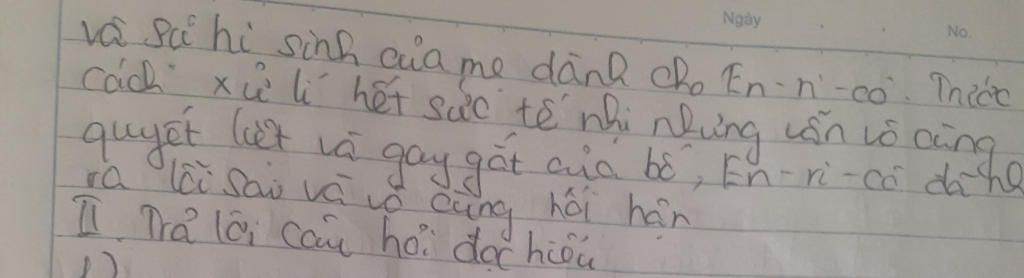 Ngày No.
và sự hi sinh của mẹ dành cho En-ri-cô. Trước
cách xử lí hết sức tế nhị nhưng vẫn vô cùng
quyết liệt và gay gắt của bố, En-ri-cô đã nhậ
ra lỗi sai và vô cùng hối hận
II. Trả lời câu hỏi đọc hiểu
1)